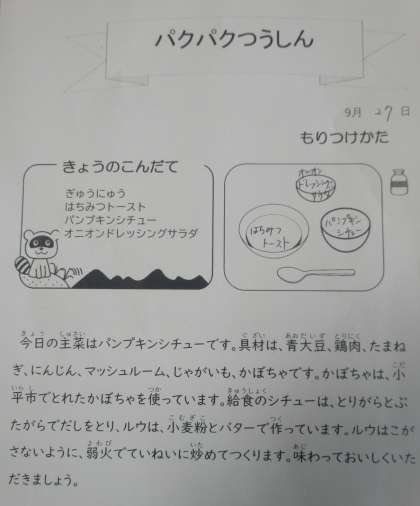 パクパクつうしん
9月 27日
もりつけかた
きょうのこんだて
ぎゅうにゅう
はちみつトースト
パンプキンシチュー
オニオンドレッシングサラダ
オニオン
ドレッシング
サラダ
はちみつ
トースト
パンプキン
シチュー
今日の主菜はパンプキンシチューです。具材は、青大豆、鶏肉、たまね
ぎ、にんじん、マッシュルーム、じゃがいも、かぼちゃです。かぼちゃは、小
平市でとれたかぼちゃを使っています。給食のシチューは、とりがらとぶ
たがらでだしをとり、ルウは、小麦粉とバターで作っています。ルウはこが
さないように、弱火でていねいに炒めてつくります。味わっておいしくいた
だきましょう。